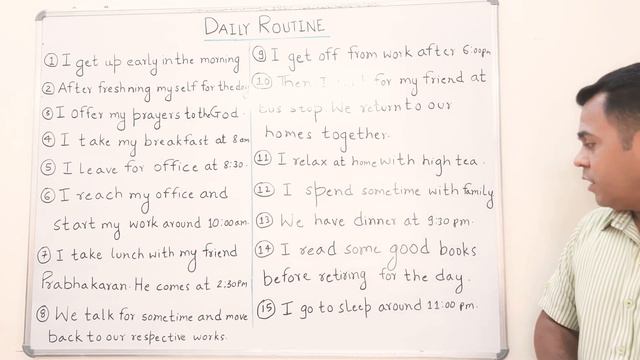 DAILY ROUTINE
1 I get up early in the morning
2 After freshning myself for the day
3 I offer my prayers to the God.
4 I take my breakfast at 8 am
5 I leave for office at 8:30.
6 I reach my office and
start my work around 10:00 am.
7 I take lunch with my friend
Prabhakaran. He comes at 2:30 PM
8 We talk for sometime and move
back to our respective works.
9 I get off from work after 6:00 pm
10 Then I for my friend at
bus stop. We return to our
homes together.
11 I relax at home with high tea.
12 I spend sometime with family
13 We have dinner at 9:30 pm.
14 I read some good books
before retiring for the day.
15 I go to sleep around 11:00 pm.